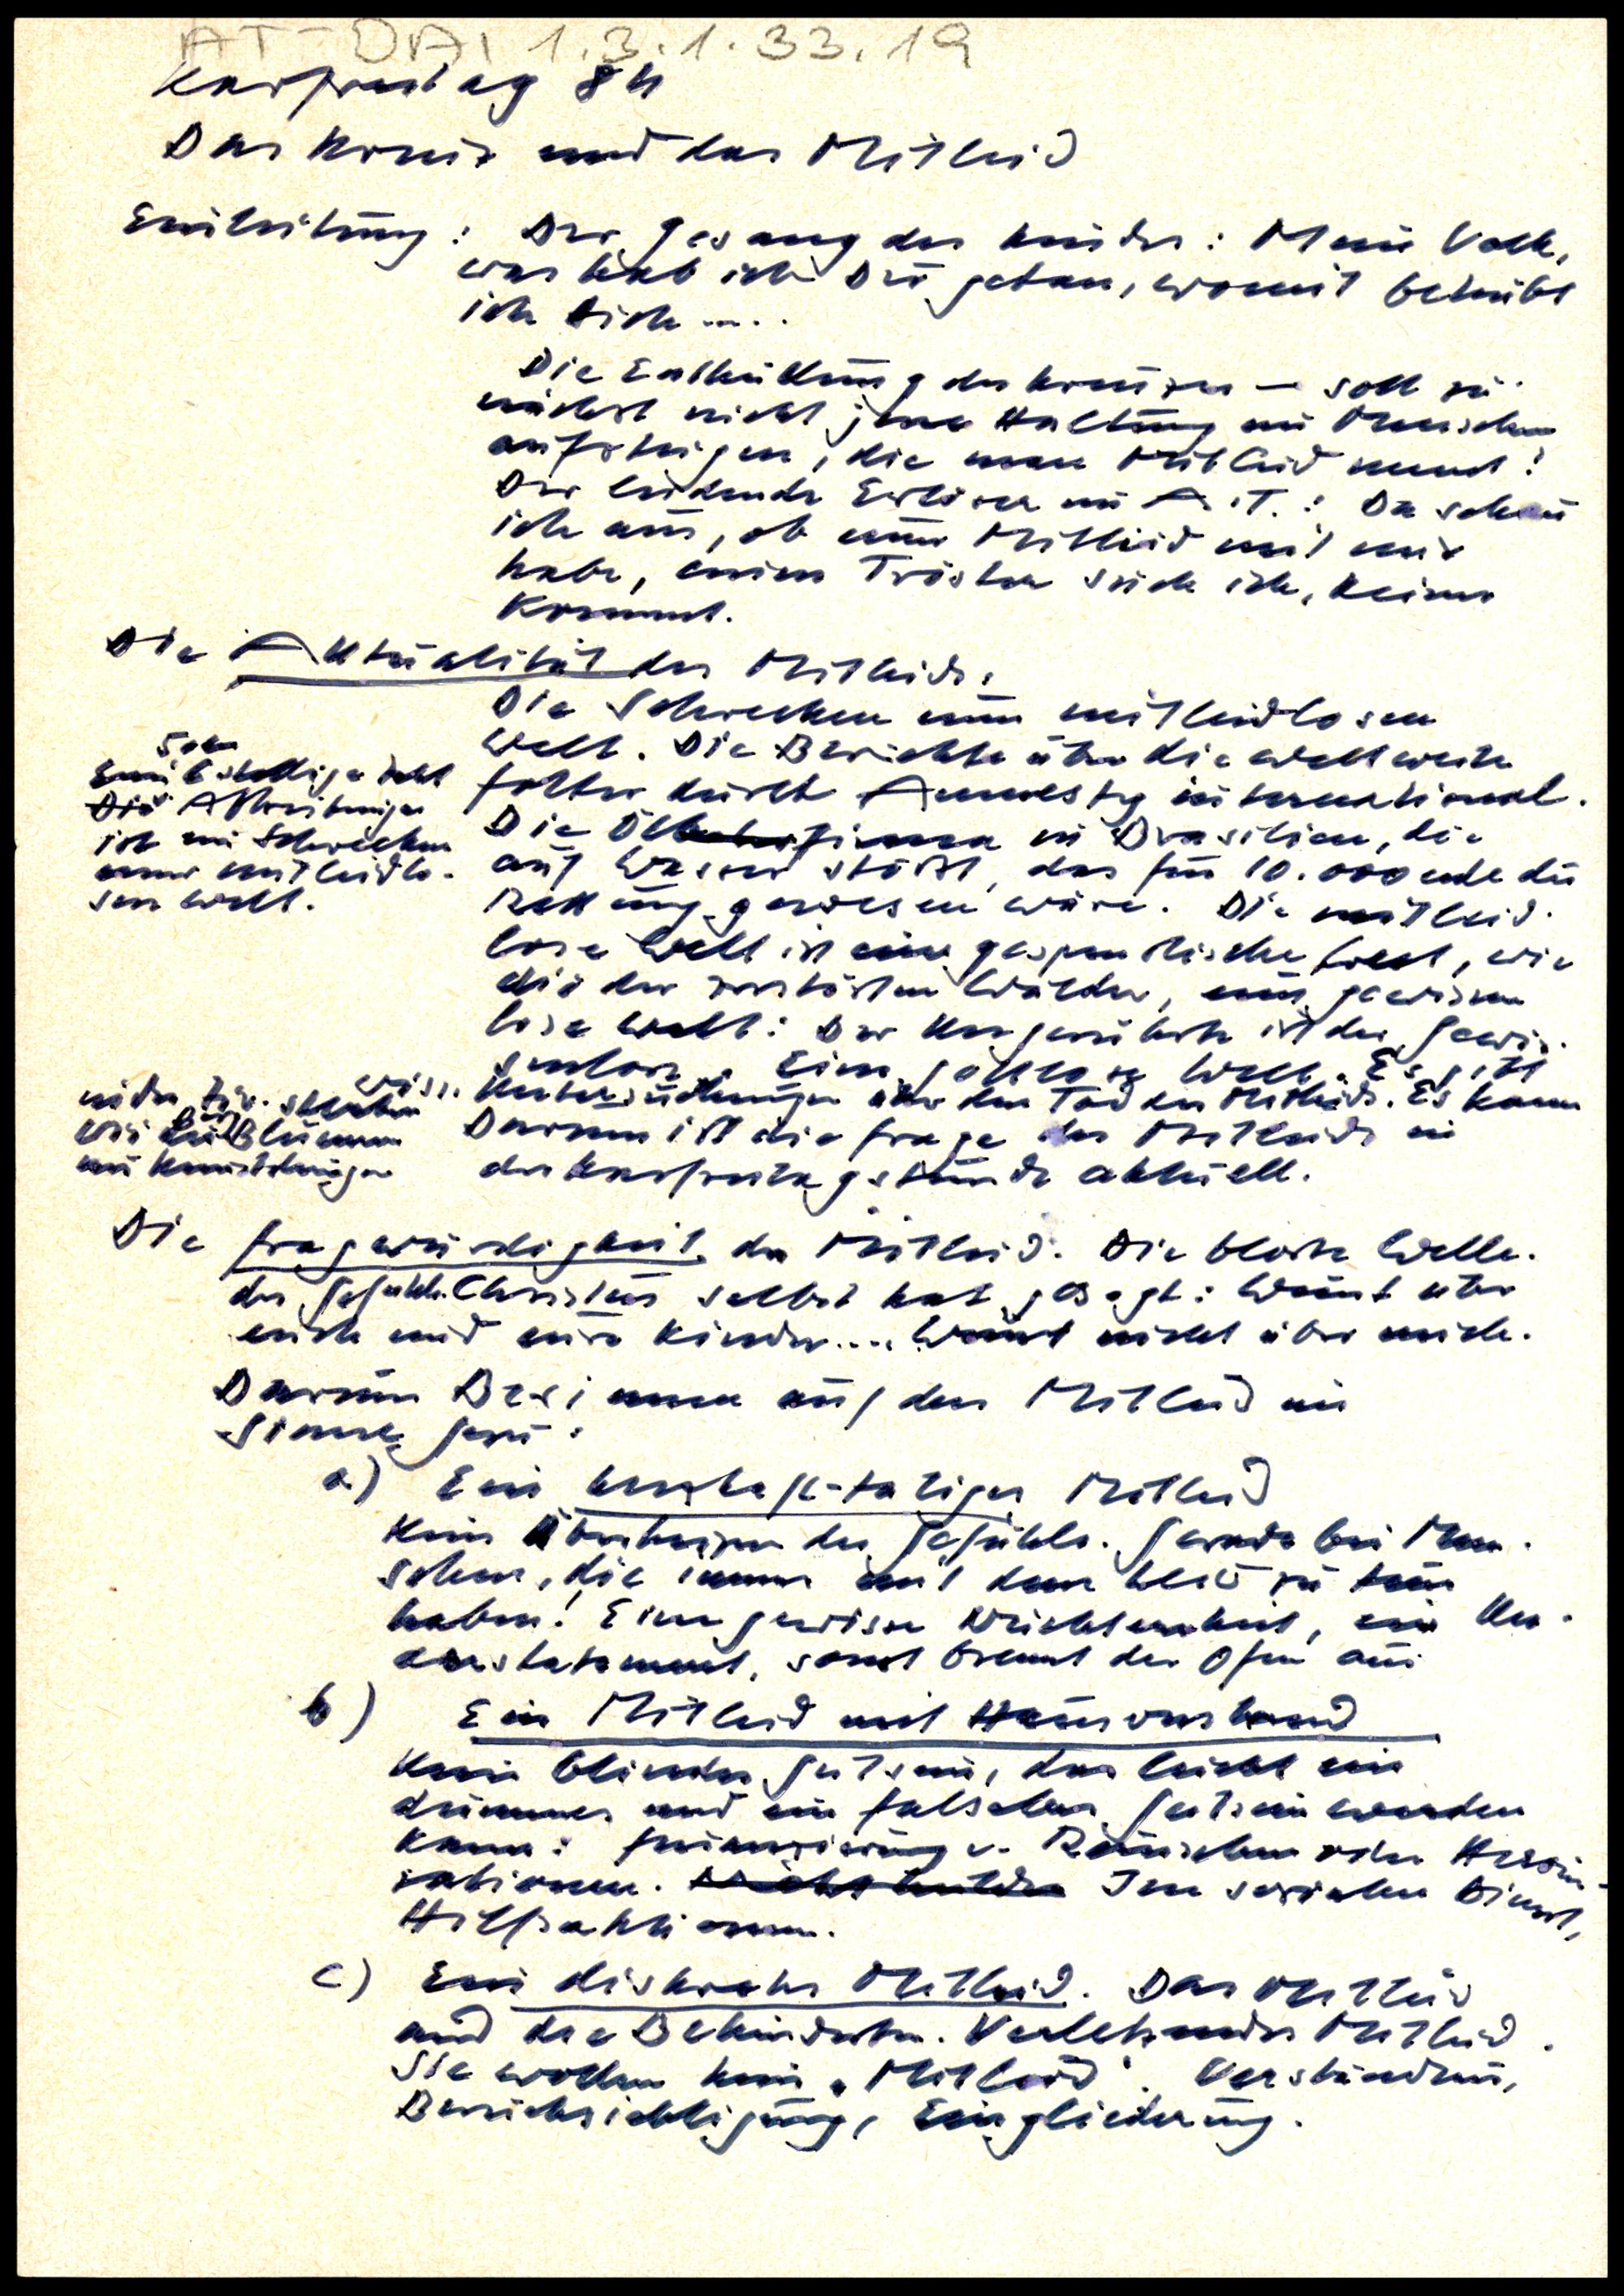 AT-DAI 1.3.1.33.19
Karfreitag 84
Das Kreuz und das Mitleid
Einleitung: Der Gesang der Kinder: Mein Volk,
was hab ich Dir getan, womit betrübt
ich Dich....
Die Enthüllung des Kreuzes – soll zu-
nächst nicht jene Haltung im Menschen
aufsteigen, die man Mitleid nennt?
Der leidende Erlöser im A.T.: Da schau
ich aus, ob einer Mitleid mit mir
habe, einen Tröster suche ich, keiner
kommt.
Die Aktualität des Mitleids:
Die Schrecken einer mitleidlosen
Welt. Die Berichte über die weltweite
Folter durch Amnesty international.
Die Ölfirma in Brasilien, die
auf Wasser stößt, das für 10.000ende die
Rettung gewesen wäre. Die mitleid-
lose Welt ist eine gespenstische Welt, wie
die der zerstörten Wälder, eine gewissen
lose Welt: Der Ungerührte ist der Gewis-
senlose. Eine gottlose Welt. Es gibt
wiss. Untersuchungen über den Tod des Mitleids. Es kann
Darum ist die Frage des Mitleids in
der Karfreitagsstunde aktuell.
50tn
Eine 6stellige Zahl
Die Abtreibungen
ist ein Schrecken
einer mitleidlo-
sen Welt.
in der Ziv. sterben
wie Blumen
im Kunstdünger
Die Fragwürdigkeit des Mitleids. Die bloße Welle
der Gefühle. Christus selbst hat gesagt: Weint über
euch und eure Kinder.... Weint nicht über mich.
Darum Besinnen auf das Mitleid im
Sinne Jesu:
a) Ein herzhaft-tätiges Mitleid
Kein Übersteigen der Gefühle. Gerade bei Men-
schen, die immer mit dem Leid zu tun
haben! Eine gewisse Nüchternheit, ein Un-
derstatement, sonst brennt der Ofen aus
b) Ein Mitleid mit Hausverstand
Kein blindes Gutsein, das leicht ein
dummes und ein falsches Gutsein werden
kann: Finanzierung v. Räuschen oder Heroin-
rationen. Im sozialen Dienst,
Hilfsaktionen.
c) Ein diskretes Mitleid. Das Mitleid
und die Behinderten. Verletzendes Mitleid.
Sie wollen kein „Mitleid". Verständnis,
Berücksichtigung, Eingliederung.